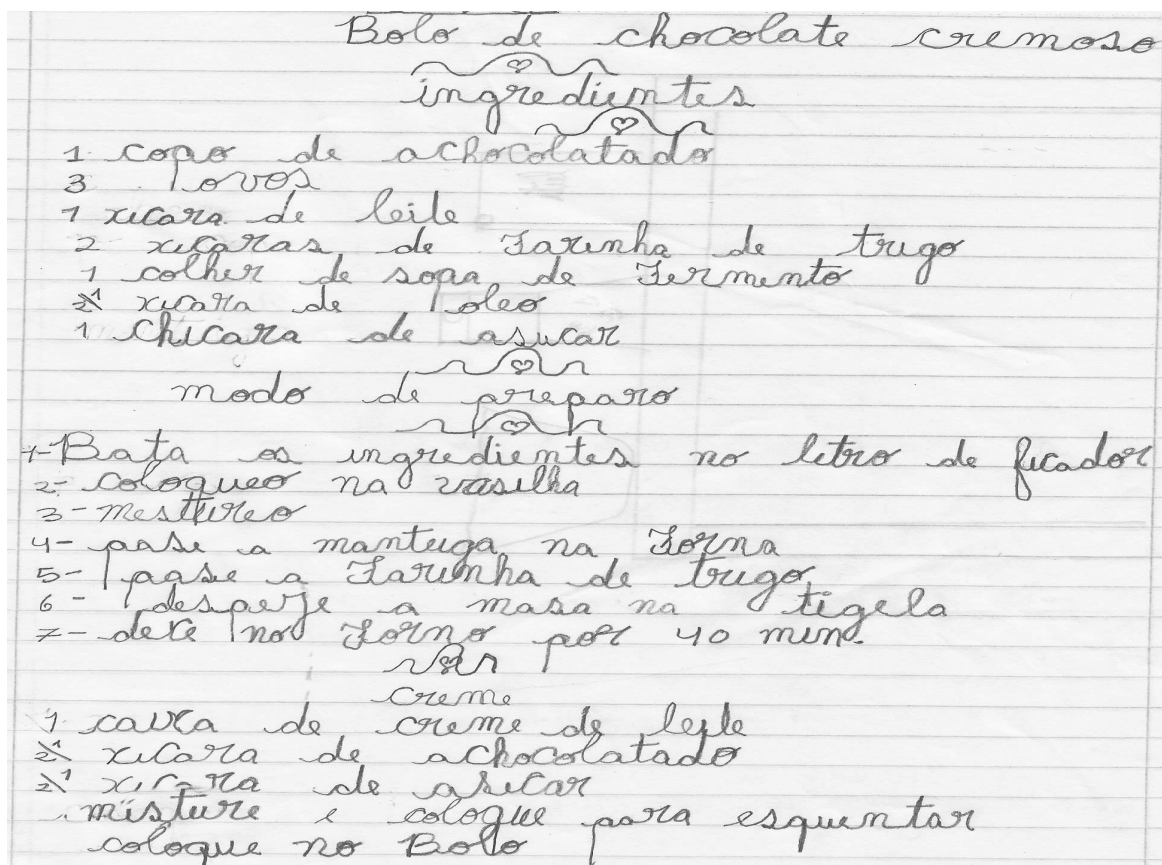 Bolo de chocolate cremoso
ingredientes
1 copo de achocolatado
3 ovos
1 xicara de leite
2 xicaras de Farinha de trigo
1 colher de sopa de Fermento
½ xicara de oleo
1 chicara de asucar
modo de preparo
1- Bata os ingredientes no litro de ficador
2- coloqueo na vasilha
3- mestureo
4- pase a mantuga na Forna
5- pase a Farinha de trigo
6- despeje a masa na tigela
7- dexe no Forno por 40 min.
creme
1 caixa de creme de leite
½ xicara de achocolatado
½ xicara de asucar
misture e coloque para esquentar
coloque no Bolo